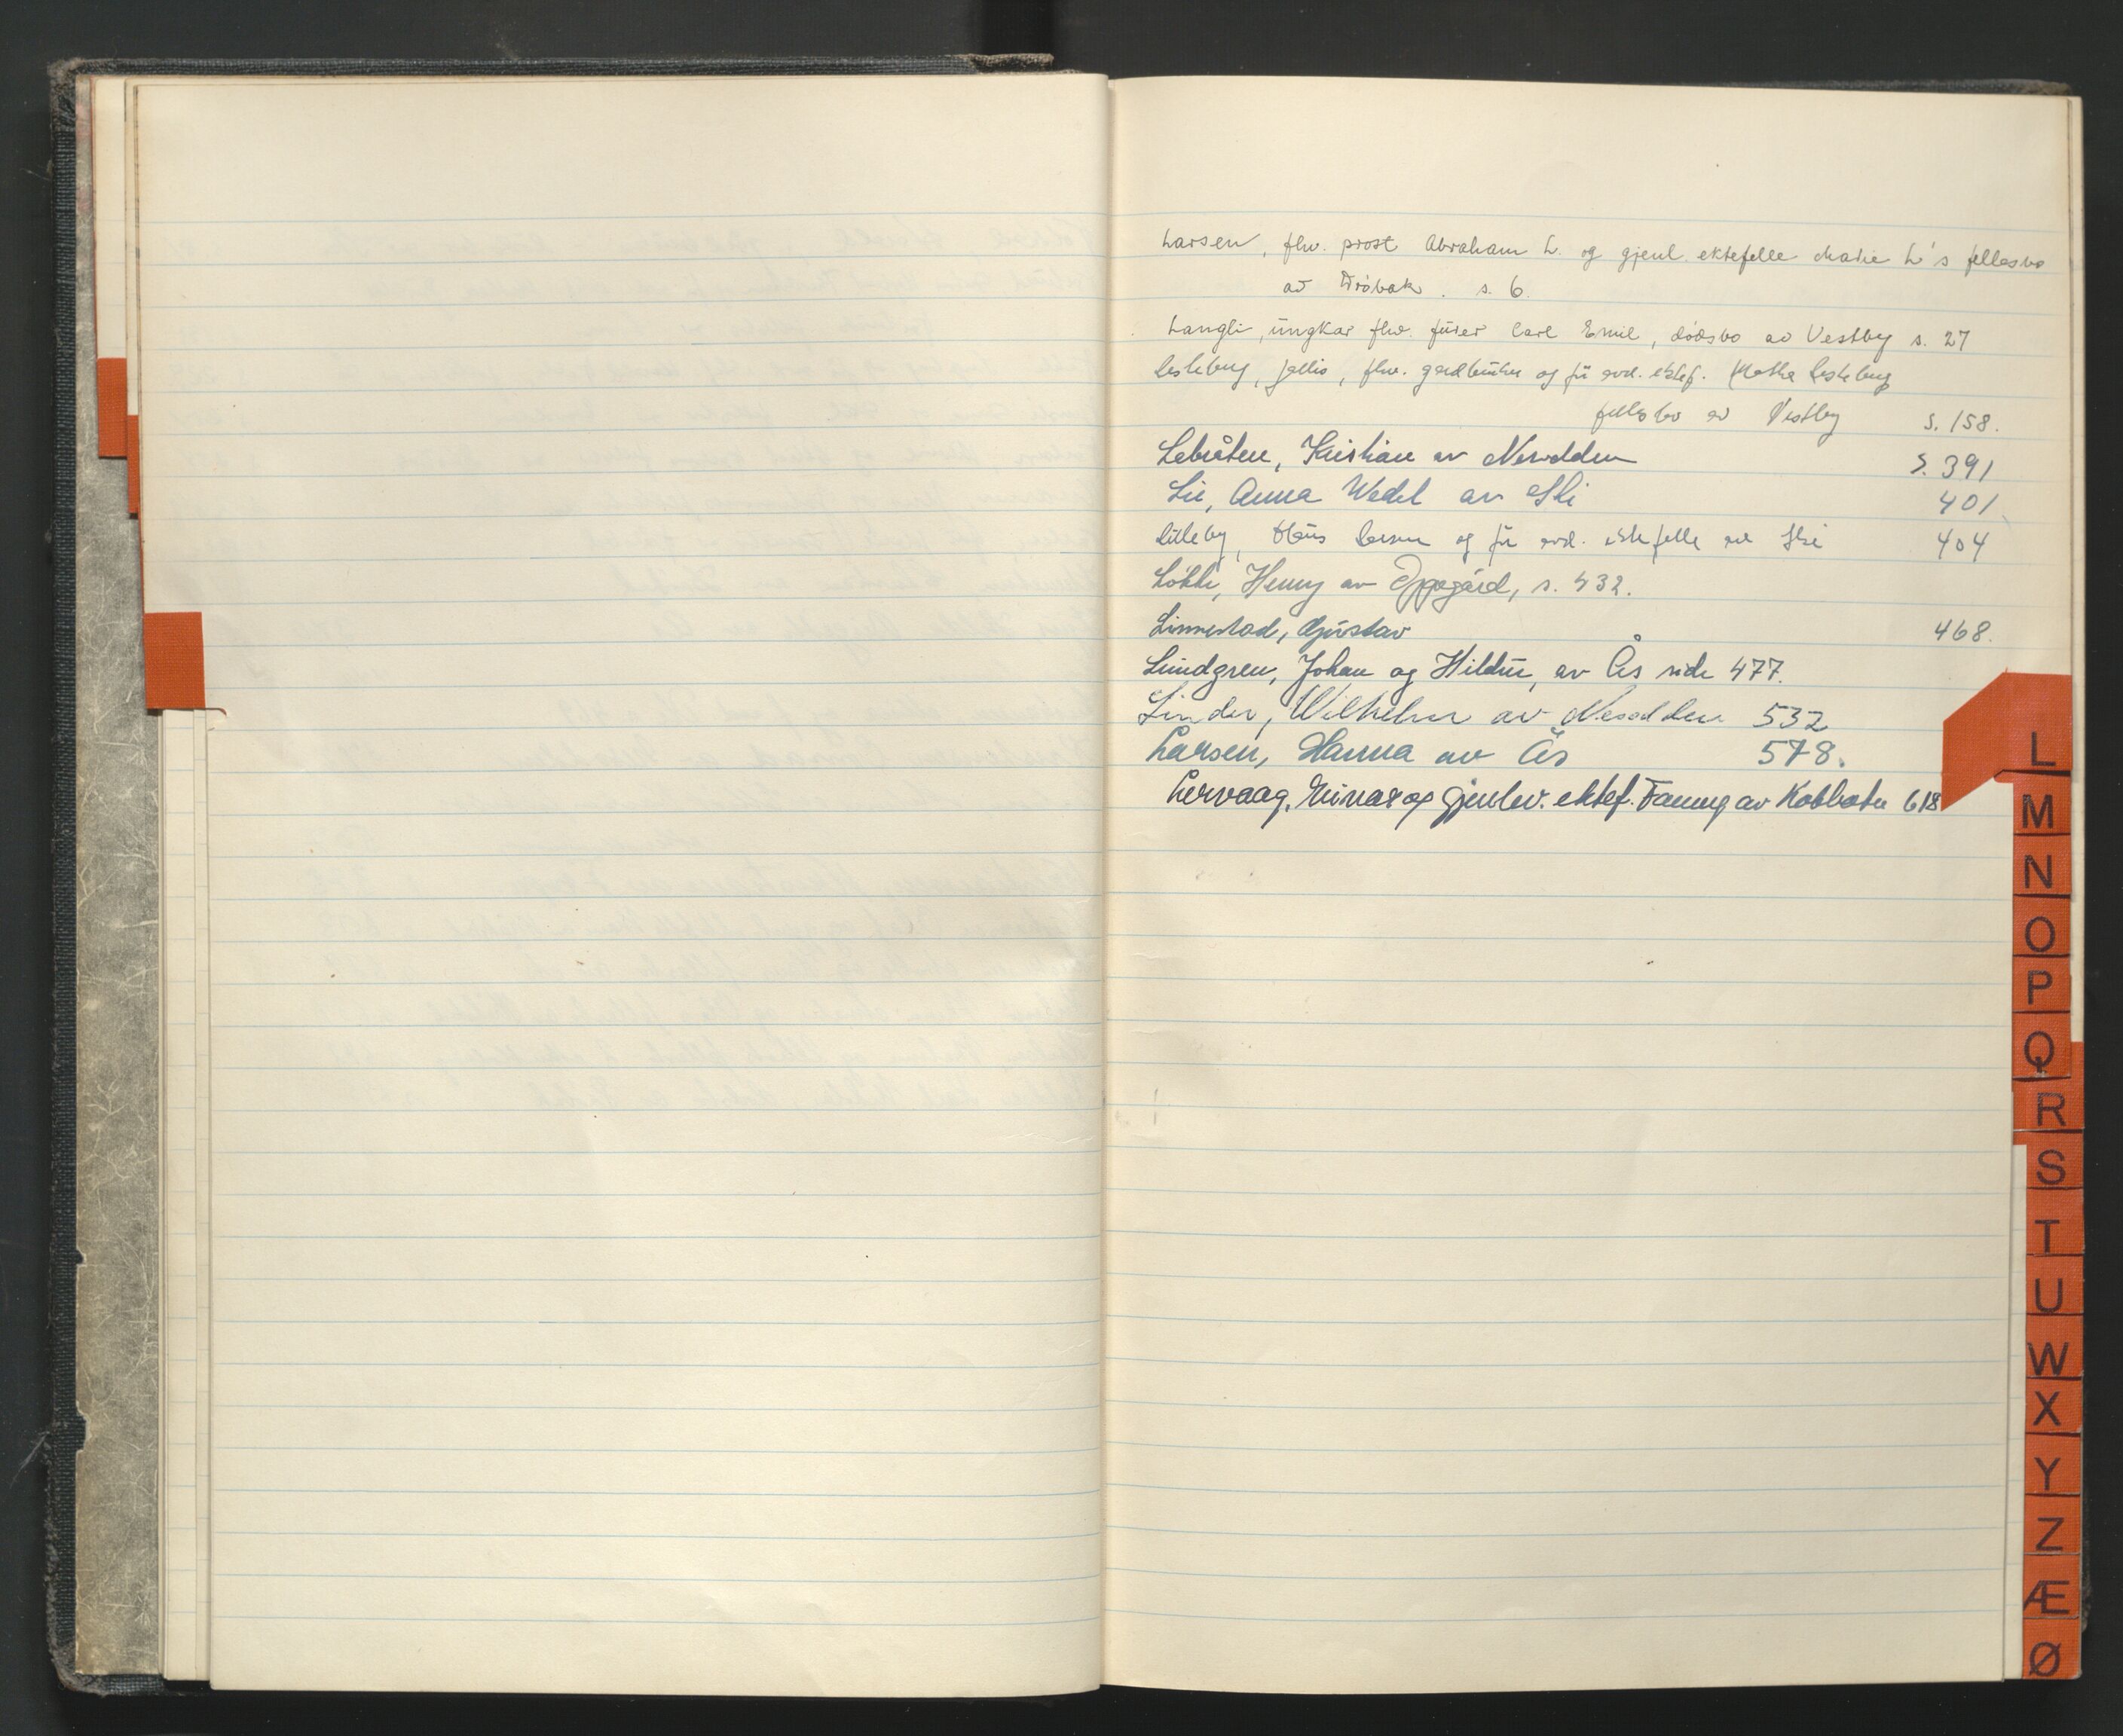 Larsen, fhv. prost Abraham L. og gjenl. ektefelle Marie L's fellesbo
av Drøbak. s. 6.
Langli, ungkar fhv. furer Carl Emil, dødsbo av Vestby s. 27
fhv. gardbruker og før avd. ektef. Mathea
fellesbo av Vestby s. 158.
Lebråten, Kristian av Nesodden s. 391
Lie, Anna Wedel av Ski 401
Lilleby, Hans og før avd. ektefelle av Ski 404
Løkke, Henny av Oppegård, s. 432.
Linnestad, Gustav 468.
Lundgren, Johan og Hildur, av Ås side 477.
Linder, Wilhelm av Nesodden 532
Larsen, Hanna av Ås 578.
Lervaag, Einar og gjenlev. ektef. Fanny av Kolbotn 618
L
M
N
O
P
Q
R
S
T
U
W
X
Y
Z
Æ
Ø